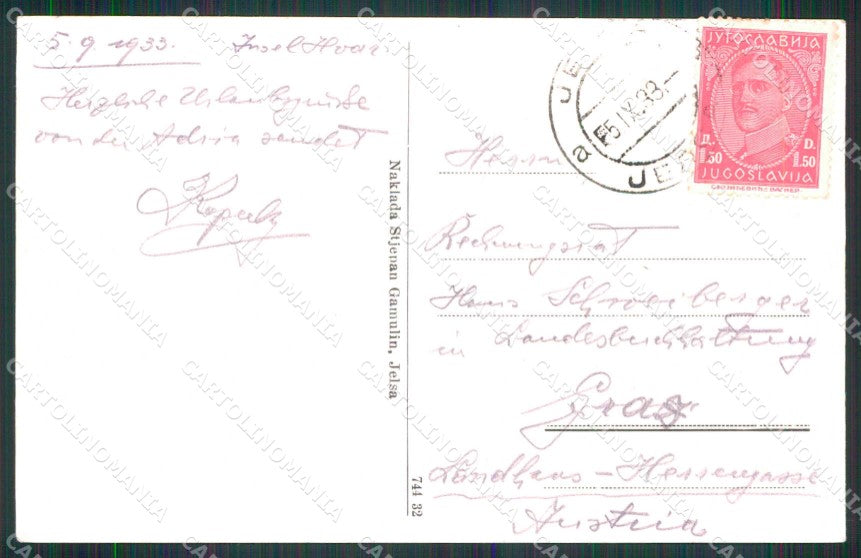 5. 9 1933. Insel Hvar
Herzliche Urlaubsgrüße
von der Adria sendet
Naklada Stjepan Gamulin, Jelsa
744 32
JUGOSLAVIJA
ЈУГОСЛАВИЈА
Д. D.
1.50 1.50
JUGOSLAVIJA
5 IX. 33.
a
Herrn
Rechnungsrat
Hans Schreiberger
in Landesbuchhaltung
Graz
Landhaus - Herrengasse
Austria
CARTOLINOMANIA